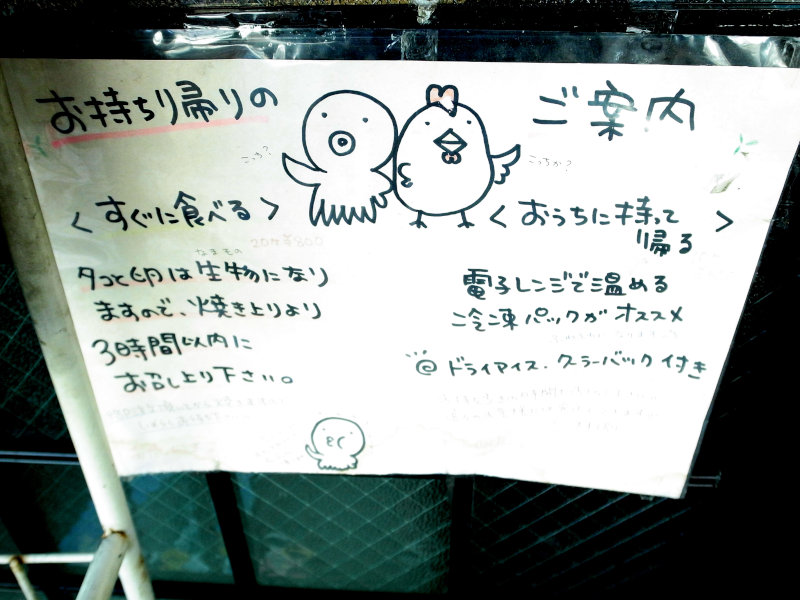 お持ち帰りの
ご案内
こっち?
こっちか?
<すぐに食べる>
20ヶ¥800
なまもの
タコと卵は生物になり
ますので、焼き上りより
3時間以内に
お召し上り下さい。
<おうちに持って
帰る>
電子レンジで温める
冷凍パックがオススメ
ドライアイス・クーラーバック付き